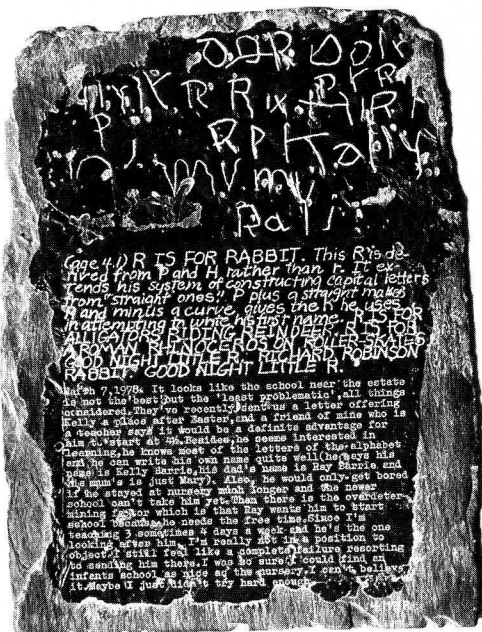 R R
R P Kally
(age 4.1) R IS FOR RABBIT. This R is de-
rived from P and H rather than r. It ex-
tends his system of constructing capital letters
from "straight ones." P plus a straight makes
R and minus a curve, gives the K he uses
in attempting to write his first name. R IS FOR
ALLIGATORS THUNDER. R IS FOR
A BABY RHINOCEROS ON ROLLER-SKATES.
GOOD NIGHT LITTLE R. RICHARD ROBINSON
RABBIT, GOOD NIGHT LITTLE R.
March 7, 1978. It looks like the school near the estate
is not the 'best' but the 'least problematic', all things
considered. They've recently sent us a letter offering
Kelly a place after Easter, and a friend of mine who is
a teacher says it would be a definite advantage for
him to start at 4½. Besides, he seems interested in
learning, he knows most of the letters of the alphabet
and he can write his own name quite well (he says his
name is Kelly Barrie, his dad's name is Ray Barrie and
his mum's is just Mary). Also, he would only get bored
if he stayed at nursery much longer and the newer
school can't take him yet. Then there is the overdeter-
mining factor which is that Ray wants him to start
school because he needs the free time. Since I'm
teaching 3 sometimes 4 days a week and he's the one
looking after him, I'm really not in a position to
object. I still feel like a complete failure resorting
to sending him there. I was so sure I could find an
infants school as nice as the nursery. I can't believe
it. Maybe I just didn't try hard enough.